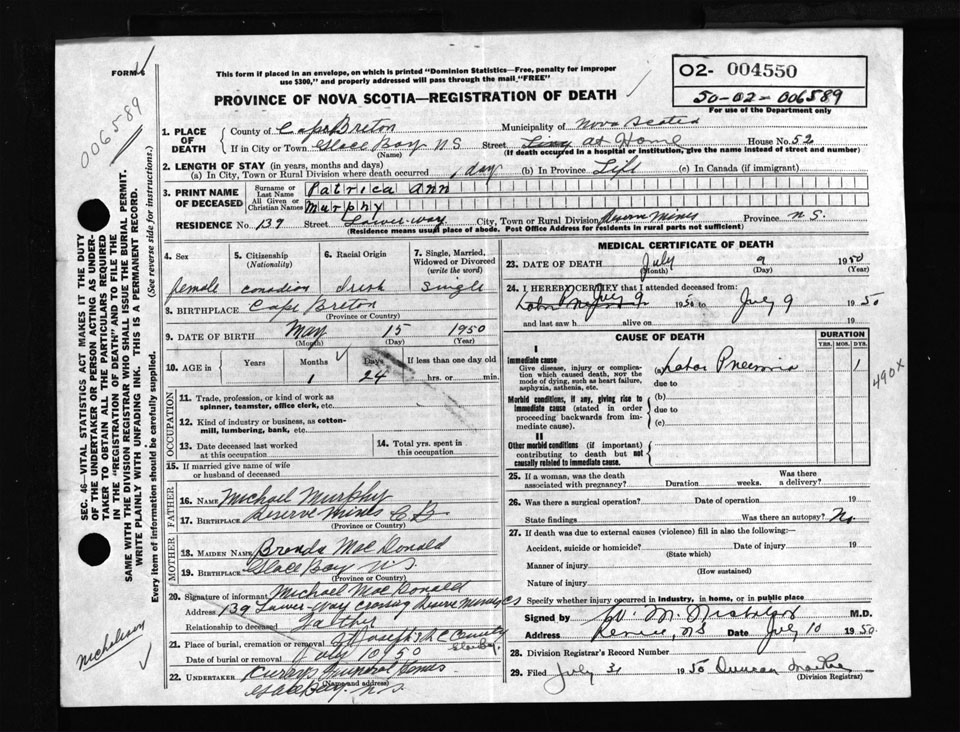 FORM 6
This form if placed in an envelope, on which is printed "Dominion Statistics—Free, penalty for improper
use $300," and properly addressed will pass through the mail "FREE"
PROVINCE OF NOVA SCOTIA—REGISTRATION OF DEATH
O2- 004550
50-02-006589
For use of the Department only
006589
SEC. 46—VITAL STATISTICS ACT MAKES IT THE DUTY
OF THE UNDERTAKER OR PERSON ACTING AS UNDER-
TAKER TO OBTAIN ALL THE PARTICULARS REQUIRED
IN THE "REGISTRATION OF DEATH" AND TO FILE THE
SAME WITH THE DIVISION REGISTRAR WHO SHALL ISSUE THE BURIAL PERMIT.
WRITE PLAINLY WITH UNFADING INK. THIS IS A PERMANENT RECORD.
Every item of information should be carefully supplied. (See reverse side for instructions.)
1. PLACE OF DEATH
County of Cape Breton Municipality of Nova Scotia
If in City or Town Glace Bay N S Street at Home House No. 52
(Name) (If death occurred in a hospital or institution, give the name instead of street and number)
2. LENGTH OF STAY (in years, months and days)
(a) In City, Town or Rural Division where death occurred 1 day (b) In Province Life (c) In Canada (if immigrant)
3. PRINT NAME OF DECEASED
Surname or Last Name Patrica Ann
All Given or Christian Names Murphy
RESIDENCE No 139 Street Lower-way City, Town or Rural Division Reserve Mines Province N S.
(Residence means usual place of abode. Post Office Address for residents in rural parts not sufficient)
4. Sex female
5. Citizenship (Nationality) Canadian
6. Racial Origin Irish
7. Single, Married, Widowed or Divorced (write the word) Single
8. BIRTHPLACE Cape Breton
(Province or Country)
9. DATE OF BIRTH May 15 1950
(Month) (Day) (Year)
10. AGE in Years Months 1 Days 24 If less than one day old hrs. or min.
OCCUPATION
11. Trade, profession, or kind of work as
spinner, teamster, office clerk, etc.
12. Kind of industry or business, as cotton-
mill, lumbering, bank, etc.
13. Date deceased last worked
at this occupation
14. Total yrs. spent in
this occupation
15. If married give name of wife
or husband of deceased
FATHER
16. NAME Michael Murphy
17. BIRTHPLACE Reserve Mines C B
(Province or Country)
MOTHER
18. MAIDEN NAME Brenda MacDonald
19. BIRTHPLACE Glace Bay N S.
(Province or Country)
20. Signature of informant Michael MacDonald
Address 139 Lower-way Crossing Reserve Mines C B
Relationship to deceased Father
21. Place of burial, cremation or removal St Joseph's R C Cemetery Glace Bay
Date of burial or removal July 10 1950
22. UNDERTAKER Curry's Funeral Home
(Name and address)
Glace Bay. N. S.
nicholson
MEDICAL CERTIFICATE OF DEATH
23. DATE OF DEATH July 9 1950
(Month) (Day) (Year)
24. I HEREBY CERTIFY that I attended deceased from:
July 9 1950 to July 9 1950
and last saw h alive on 19
CAUSE OF DEATH
DURATION
YRS. MOS. DYS.
I
Immediate cause
Give disease, injury or complica-
tion which caused death, not the
mode of dying, such as heart failure,
asphyxia, asthenia, etc.
(a) Lobar Pneumonia 1
due to
Morbid conditions, if any, giving rise to
immediate cause (stated in order
proceeding backwards from im-
mediate cause).
(b)
due to
(c)
II
Other morbid conditions (if important)
contributing to death but not
causally related to immediate cause.
490X
25. If a woman, was the death
associated with pregnancy? Duration weeks. Was there a delivery?
26. Was there a surgical operation? Date of operation 19
State findings Was there an autopsy? No
27. If death was due to external causes (violence) fill in also the following:—
Accident, suicide or homicide? Date of injury 19
(State which)
Manner of injury
(How sustained)
Nature of injury
Specify whether injury occurred in industry, in home, or in public place
Signed by W. M. Nicholson M.D.
Address Date July 10 1950.
28. Division Registrar's Record Number
29. Filed July 31 1950 Duncan
(Division Registrar)